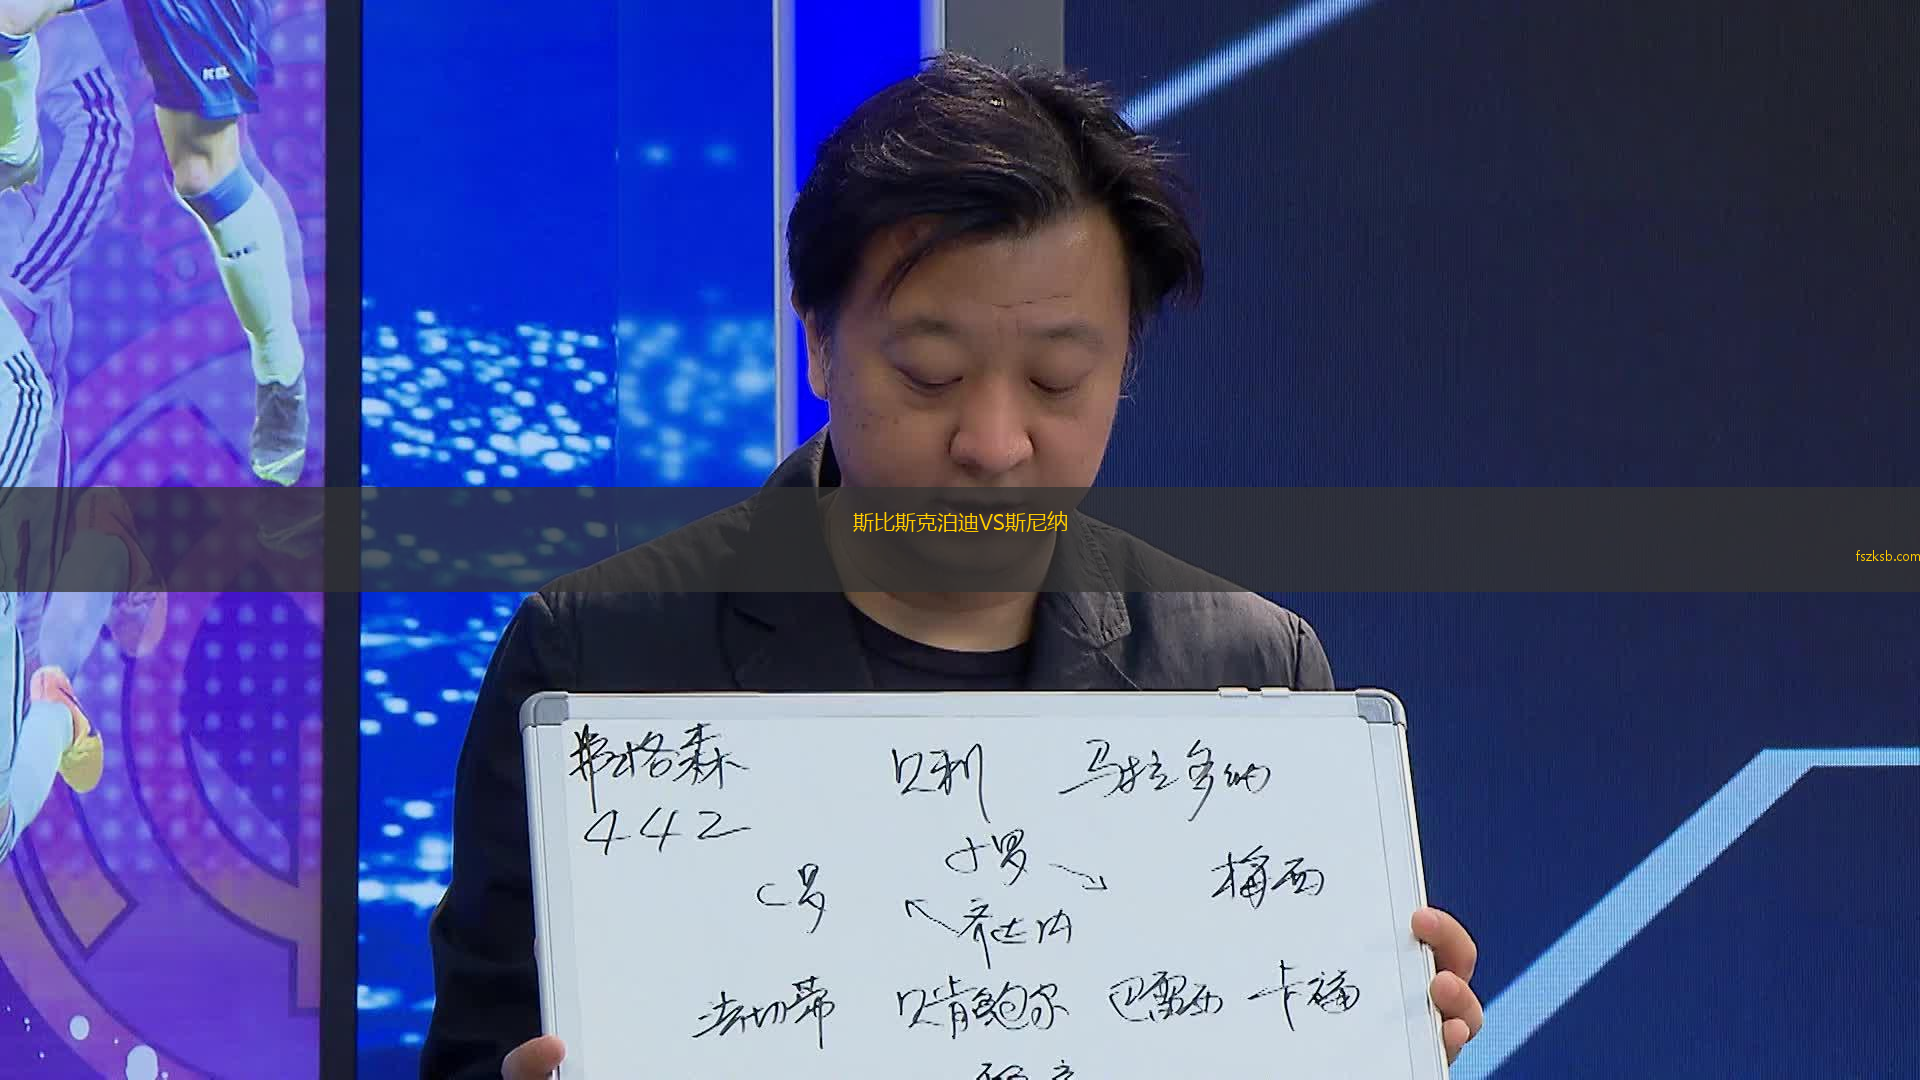 斯比斯克泊迪VS斯尼纳
fszksb.com
弗格森 贝利 马拉多纳
442
小罗
C罗 梅西
齐达内
法切蒂 贝肯鲍尔 巴雷西 卡福